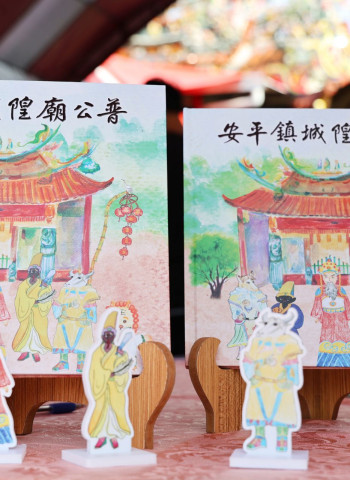 隍廟公普
安平鎮城隍